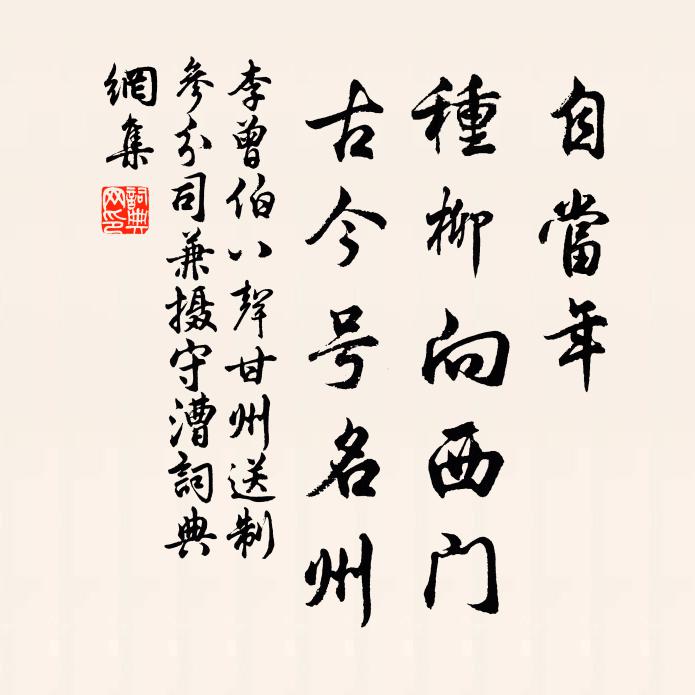 自當年
種柳向西門
古今号名州
李曾伯八聲甘州送制
參分司兼摄守漕詞典
網集
詞典網印